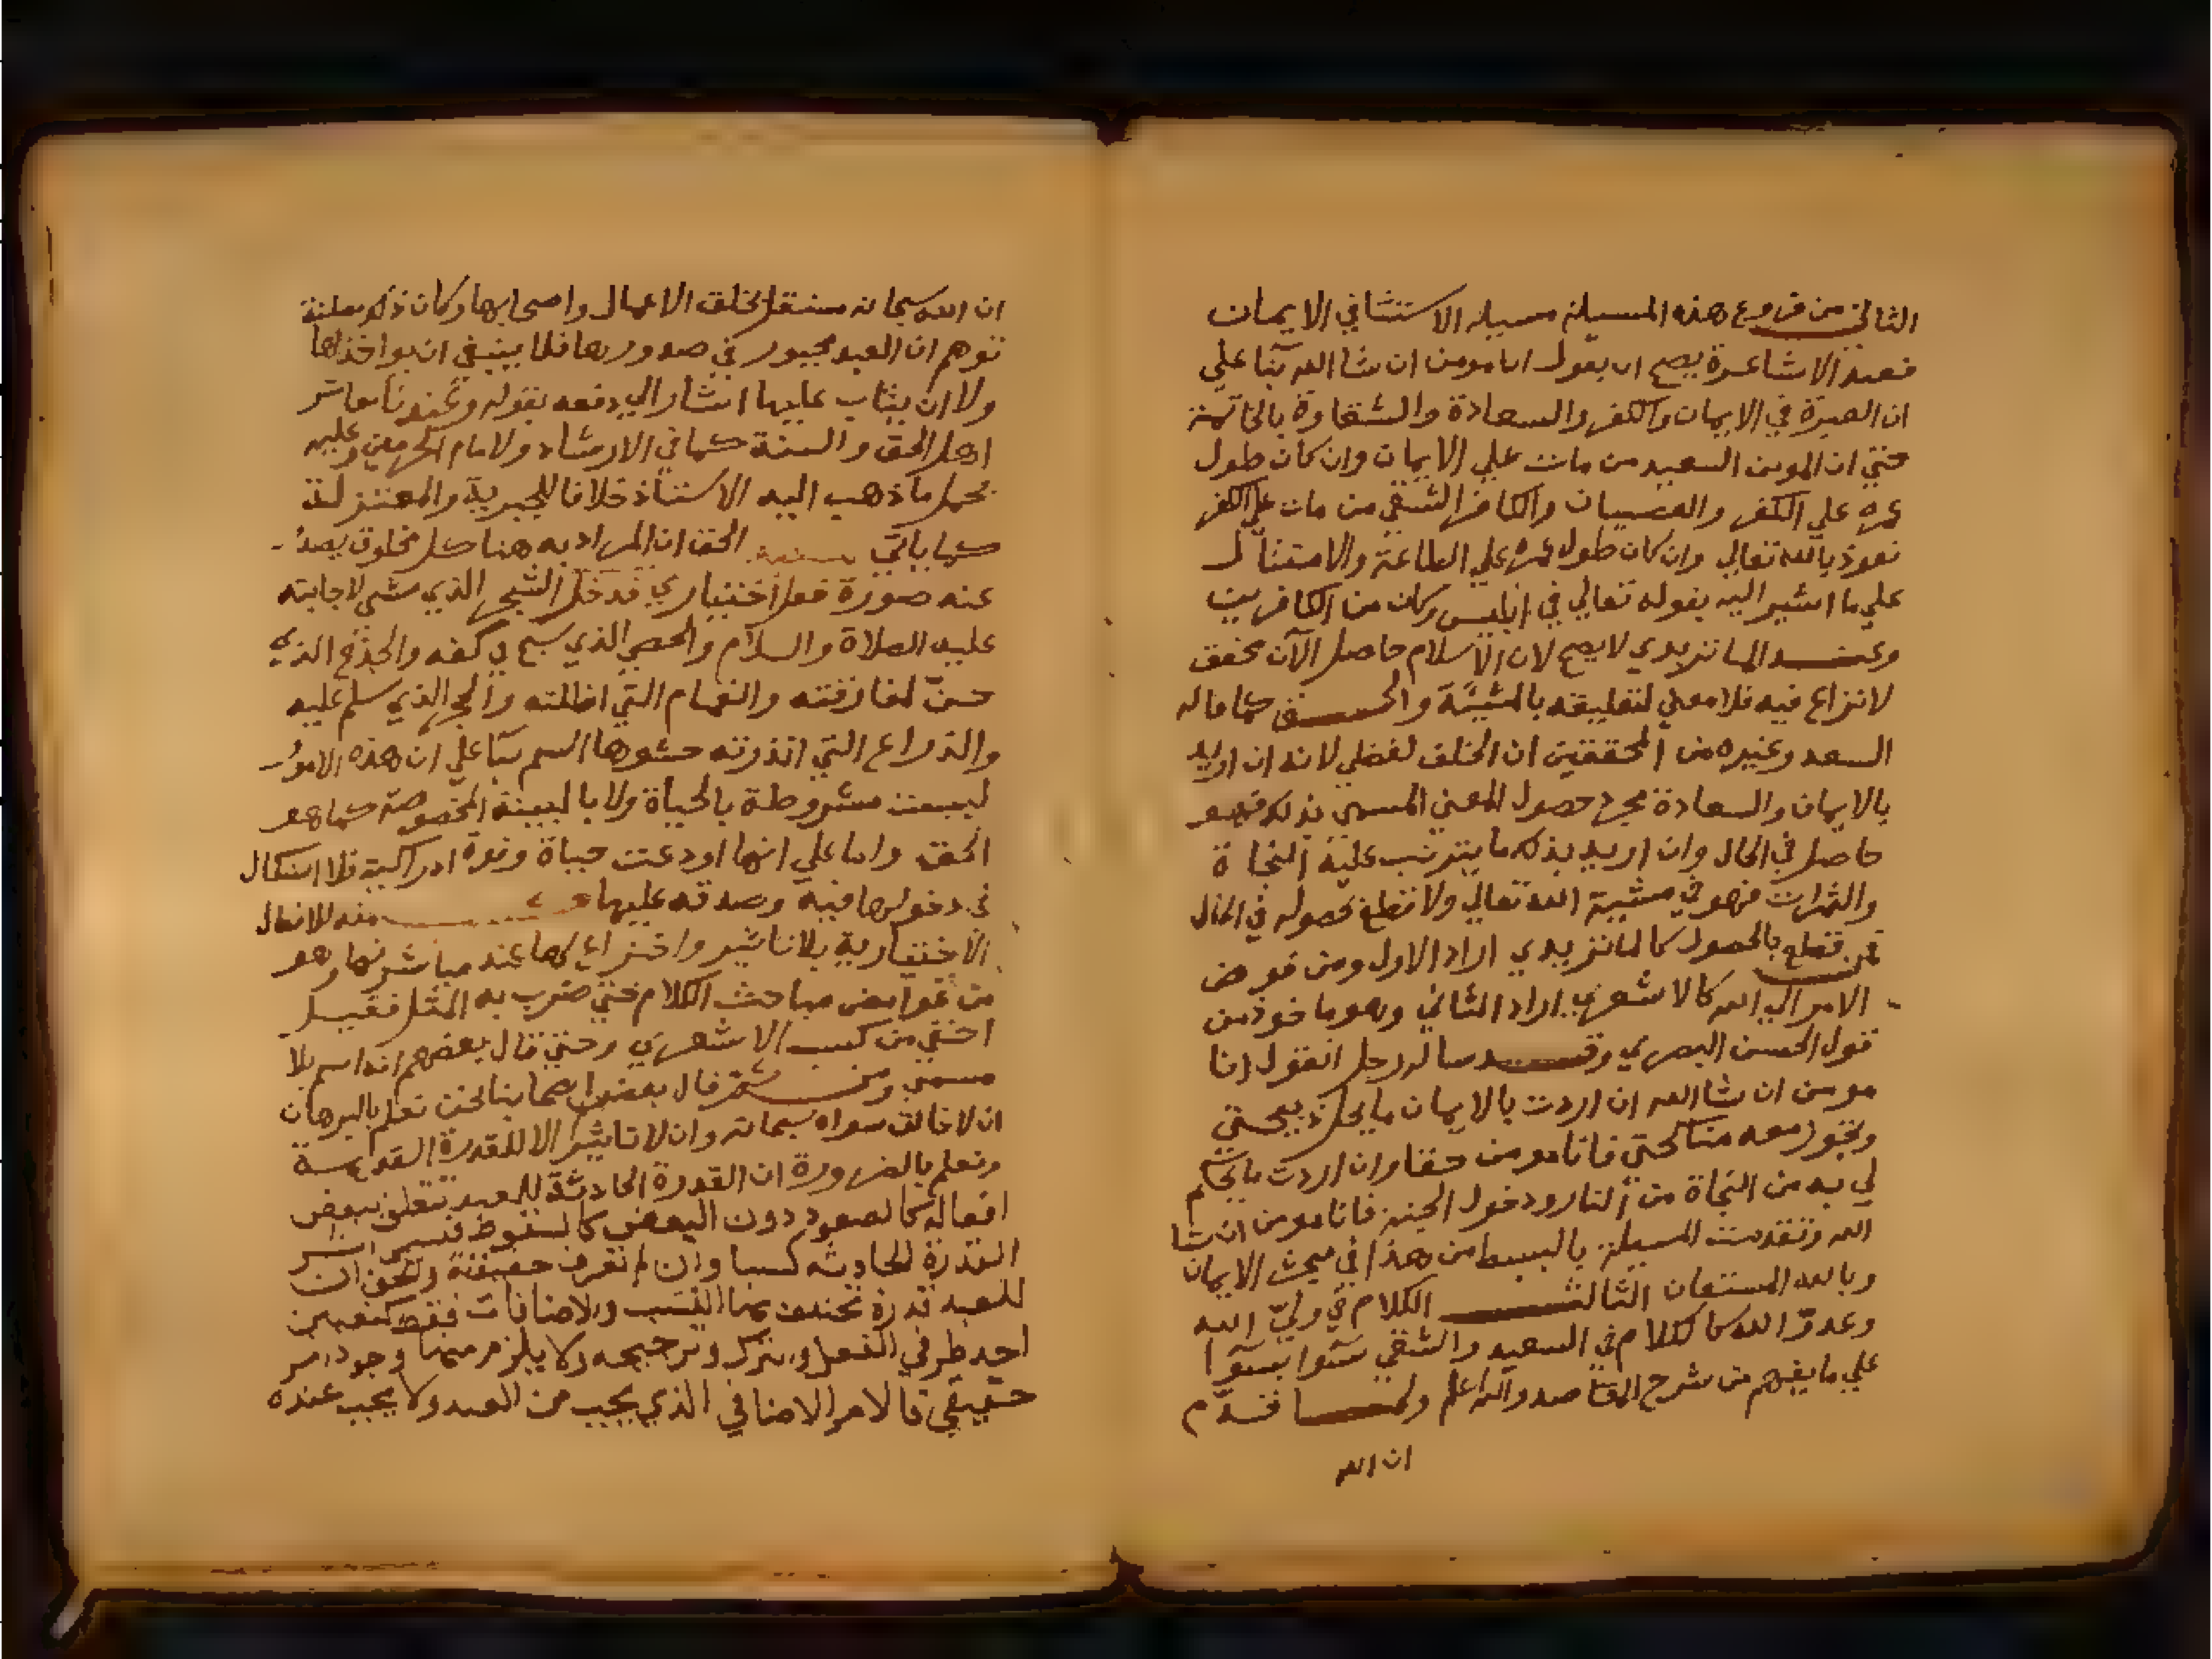 الثاني من فروع هذه المسيلة مسيلة الاستثنا في الايمان
فعند الاشاعرة يصح ان يقول انا مومن ان شا الله بنآ علي
ان العبرة في الايمان والكفر والسعادة والشقاوة بالخاتمة
حتي ان المومن السعيد من مات علي الايمان وان كان طول
عمره علي الكفر والعصيان والكافر الشقي من مات علي الكفر
نعوذ بالله تعالي وان كان طول عمره علي الطاعة والامتثال
علي ما اشير اليه بقوله تعالي في ابليس وكان من الكافرين
وعند الماتريدي لا يصح لان الاسلام حاصل الآن محقق
لا نزاع فيه فلا معني لتعليقه بالمشيئة والحق كما قاله
السعد وغيره من المحققين ان الخلف لفظي لانه ان اريد
بالايمان والسعادة مجرد حصول المعني المسمي بذلك فهو
حاصل في الحال وان اريد بذلك ما يترتب عليه النجاة
والثمرات فهو في مشيية الله تعالي ولا قطع بحصوله في الحال
فمن قطع بالحصول كالماتريدي اراد الاول ومن فوض
الامر الي الله كالاشعري اراد الثاني وهو ماخوذ من
قول الحسن البصري وقد ساله رجل اتقول انا
مومن ان شا الله ان اردت بالايمان ما يحل ذبيحتي
ويجوز معه مناكحتي فانا مومن حقا وان اردت ما يحكم
لي به من النجاة من النار ودخول الجنة فانا مومن ان شا
الله وتقدمت المسيلة بالبسط من هذا في مبحث الايمان
وبالله المستعان الثالث الكلام في ولي الله
وعدو الله كالكلام في السعيد والشقي سوا بسوا
علي ما يفهم من شرح المقاصد والله اعلم ولما قدم
ان الله
ان الله سبحانه مستقل بخلق الاعمال واصحابها وكان ذلك مظنة
توهم ان العبد مجبور في صدورها فلا ينبغي ان يواخذ بها
ولا ان يثاب عليها اشار الي دفعه بقوله وعندنا معاشر
اهل الحق والسنة كما في الارشاد ولامام الحرمين وعليه
يحمل ما ذهب اليه الاستاذ خلافا للجبرية والمعتزلة
كما ياتي الحق ان المراد به هنا كل مخلوق يصدر
عنه صورة فعل اختياري فدخل الشجر الذي مشي لاجابته
عليه الصلاة والسلام والحصي الذي سبح في كفه والجذع الذي
حن لمفارقته والغمام التي اظلته والحجر الذي سلم عليه
والذراع التي انذرته حشوها السم بنآ علي ان هذه الامور
ليست مشروطة بالحياة ولا بالبينة المخصوصة كما هو
الحق واما علي انها اودعت حياة وقوة ادراكية فلا اشكال
في دخولها فيه وصدقه عليها منه للافعال
الاختيارية بلا تاثير واختراع لها عند مباشرتها وهو
من غوامض مباحث الكلام حتي ضرب به المثل فقيل
اخفي من كسب الاشعري وحتي قال بعضهم انه اسم بلا
مسمي ومن ثم قال بعض اصحابنا نحن نعلم بالبرهان
ان لا خالق سواه سبحانه وان لا تاثير الا للقدرة القديمة
ونعلم بالضرورة ان القدرة الحادثة للعبد تتعلق ببعض
افعاله كالصعود دون البعض كالسقوط فنسمي اثر
القدرة الحادثة كسبا وان لم نعرف حقيقته والحق ان
للعبد قدرة تختلف بها النسب والاضافات فقط كتعيين
احد طرفي الفعل والترك وترجيحه ولا يلزم منها وجود امر
حقيقي فالامر الاضافي الذي يجب من العبد ولا يجب عنده